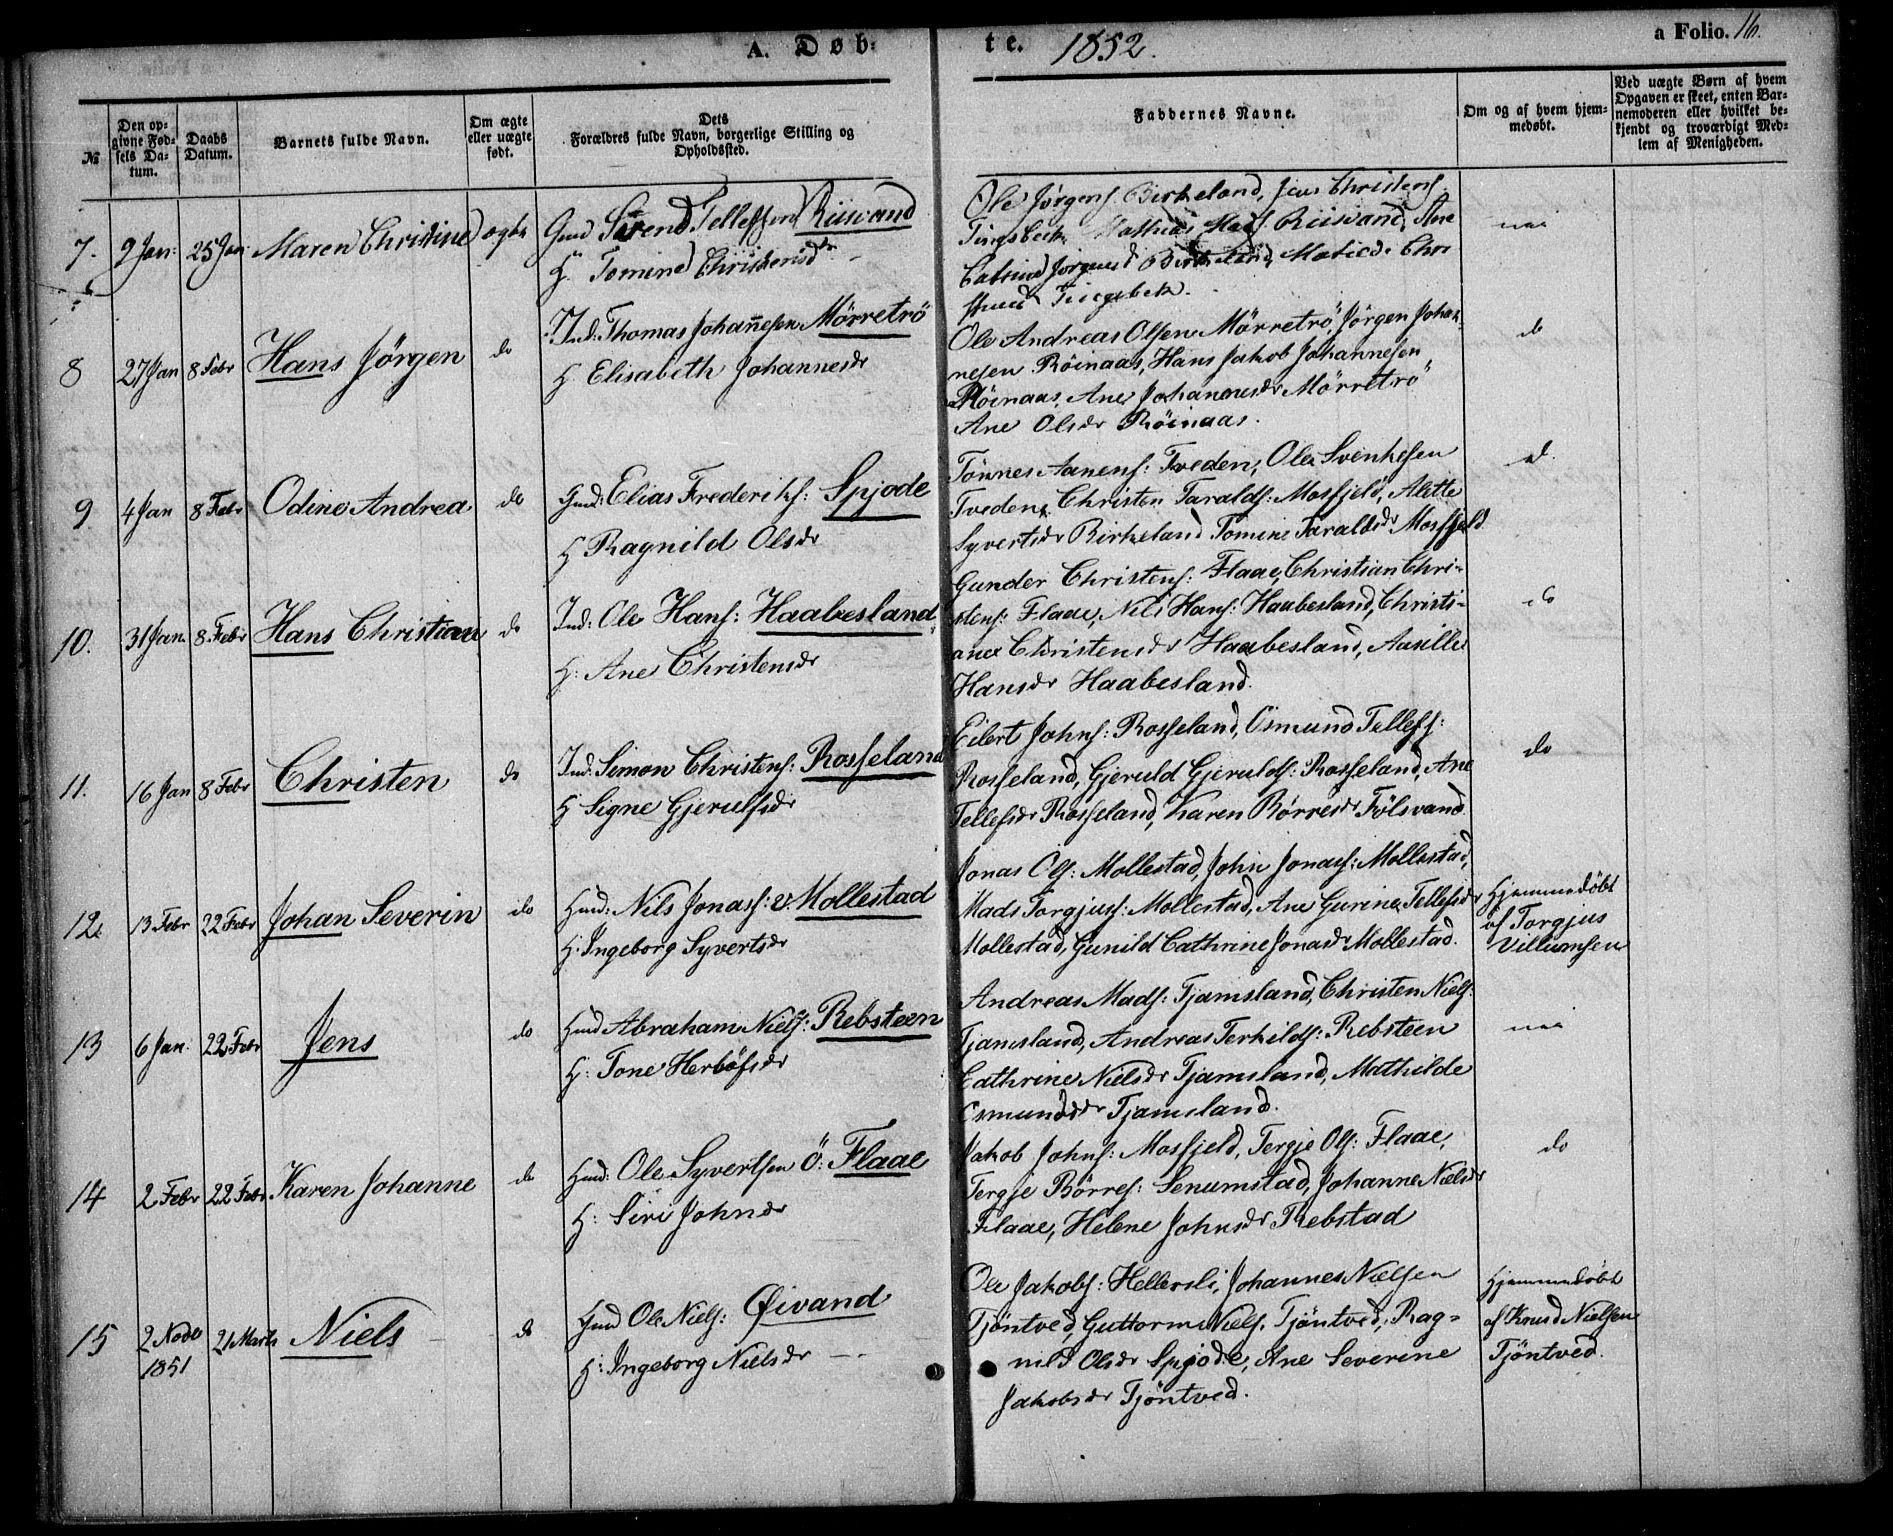 A. Døb:
te. 1852.
a Folio. 16.
№
Den op-
givne Fød-
sels Da-
tum.
Daabs
Datum.
Barnets fulde Navn.
Om ægte
eller uægte
født.
Dets
Forældres fulde Navn, borgerlige Stilling og
Opholdssted.
Faddernes Navne.
Om og af hvem hjem-
medøbt.
Ved uægte Børn af hvem
Opgaven er skeet, enten Bar-
nemoderen eller hvilket be-
kjendt og troværdigt Med-
lem af Menigheden.
7. 9 Jan: 25 Jan Maren Christine ægte
Gmd Sørend Tellefsen Riisvand
H. Tomine Christensdr
Ole Jørgens. Birkeland, Jens Christens.
Tingsbek Mathias Mads. Riisvand, Ane
Catrine Jørgensd Birkeland, Matilde Chri
Tingsbek.
nei
8 27 Jan 8 Febr Hans Jörgen do
Ind: Thomas Johannesen Mörretrö
H. Elisabeth Johannesdr
Ole Andreas Olsen Mörretrö, Jörgen Johan-
nesen Röinaas, Hans Jakob Johannesen
Röinaas, Ane Johannesdr Mörretrö
Ane Olsdr Röinaas.
do
9 4 Jan 8 Febr Odine Andrea do
Gmd: Elias Frederiks: Spjode
H Ragnild Olsdr
Tönnes Aanens: Tveden, Ole Svenkesen
Tveden, Christen Taralds: Mosfjeld, Alette
Syvertsdr Birkeland Tomine Taraldsdr Mosfjeld
d.
10. 31 Jan. 8 Febr Hans Christian do
Ind: Ole Hans: Haabesland
H: Ane Christensdr
Gunder Christens: Flaae, Christian Chri-
stens: Flaae, Nils Hans: Haabesland, Christi-
ane Christensdr Haabesland, Aasille
Hansdr Haabesland.
do
11. 16 Jan 8 Febr Christen do
Ind: Simon Christens: Rosseland
H Signe Gjerulfsdr
Eilert Johns: Rosseland, Osmund Tellefs:
Rosseland, Gjeruld Gjerulds: Rosseland, Ane
Tellefsdr Rosseland, Karen Börresdr Fölsvand
do
12. 13 Febr 22 Febr Johan Severin do
Hmd: Nils Jonass: v. Mollestad
H. Ingeborg Syvertsdr
Jonas Ols: Mollestad, John Jonass: Mollestad,
Mads Torgjuss: Mollestad, Ane Gurine Tellefsdr
Mollestad, Gunild Cathrine Jonasdr Mollestad.
Hjemmedöbt
af Torgjus
Villumsen
13 6 Jan. 22 Febr Jens do
Hmd Abraham Niels: Rebsteen
H: Tone Herlöfsdr
Andreas Mads: Tjamsland, Christen Niels:
Tjamsland, Andreas Terkilds: Rebsteen
Cathrine Nielsdr Tjamsland, Mathilde
Osmundsdr Tjamsland.
nei
14 2 Febr 22 Febr Karen Johanne do
Hmd: Ole Syvertsen Ö: Flaae
H: Siri Johnsdr
Jakob Johns: Mosfjeld, Tergje Ols: Flaae,
Tergje Börres: Senumstad, Johanne Nielsdr
Flaae, Helene Johnsdr Rebstad
do
15 2 Novb 1851 21 Marts Niels do
Hmd Ole Niels: Øivand
H: Ingeborg Nielsdr
Ole Jakobs: Hellersli, Johannes Nielsen
Tjöntved, Guttorm Niels. Tjöntved, Rag-
nild Olsdr Spjode, Ane Severine
Jakobsdr Tjöntved.
Hjemmedöbt
af Knud Nielsen
Tjöntved.